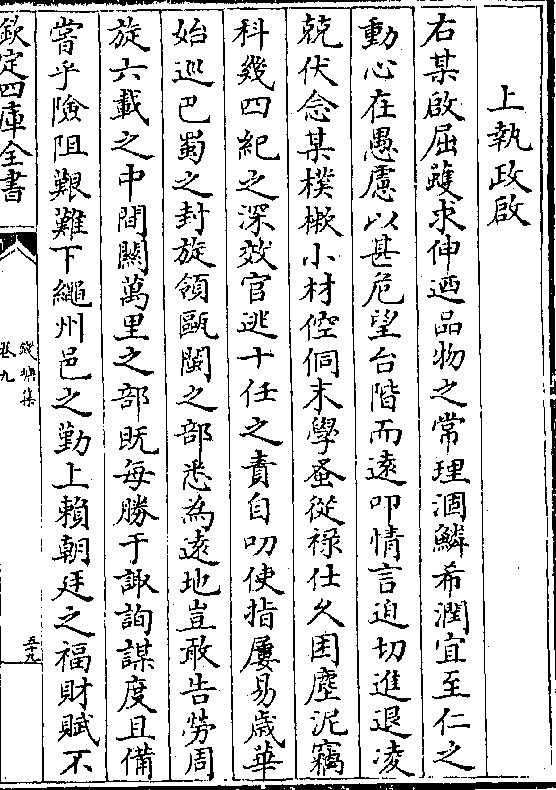 上執政啟
右某啟屈蠖求伸迺品物之常理涸鱗希潤宜至仁之
動心在愚慮以甚危望台階而遠叩情言迫切進退凌
兢伏念某樸樕小材倥侗末學蚤從禄仕久困塵泥竊
科幾四紀之深效官逃十任之責自叨使指屢易歲華
始巡巴蜀之封旋領甌閩之部悉為遠地豈敢告勞周
旋六載之中間關萬里之部既每勝于諏詢謀度且備
嘗乎險阻艱難下繩州邑之勤上賴朝廷之福財賦不
欽定四庫全書
卷九